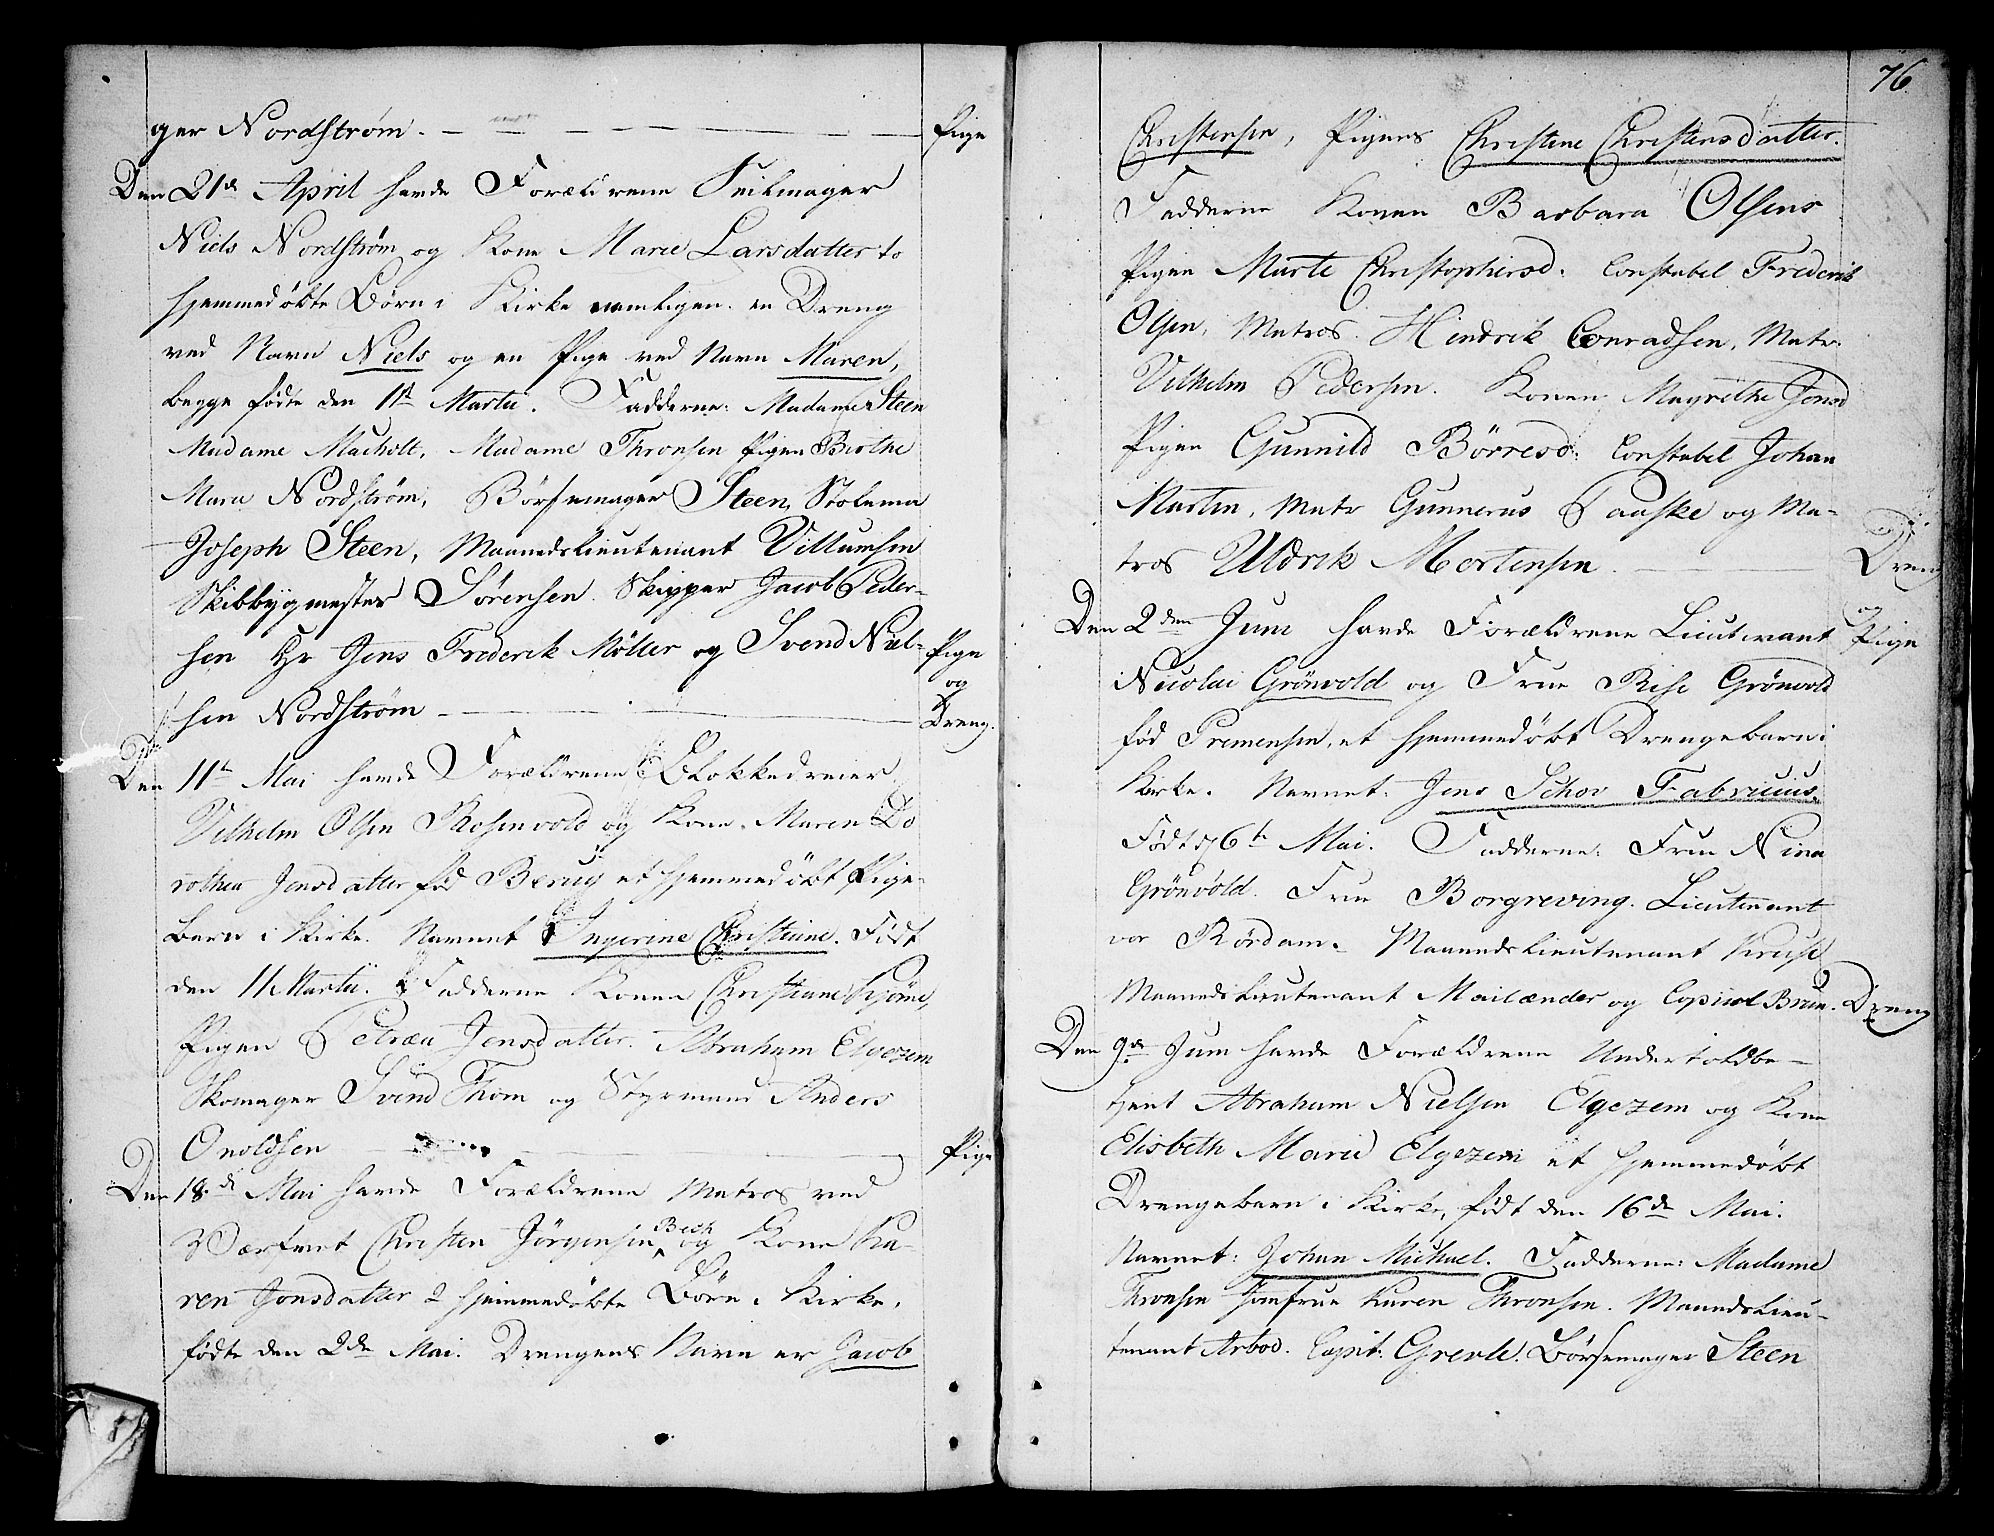 ger Nordstrøm. Pige
Den 21de April havde Forældrene Seilmager
Niels Nordstrøm og Kone Marie Larsdatter to
hjemmedøbte Børn i Kirke nemligen en Dreng
ved Navn Niels og en Pige ved Navn Maren,
begge fødte den 11te Martii. Fadderne: Madame Steen
Madame Macholt, Madame Thronsen Pigen Birthe
Maria Nordstrøm, Børsemager Steen,
Joseph Steen, Maanedslieutenant Villumsen
Skibbygmester Sørensen. Skipper Jacob Peder-
sen Hr Jens Frederik Møller og Svend Niel- Pige
og
sen Nordstrøm Dreng.
Den 11te Mai havde Forældrene Blokkedreier
Vilhelm Olsen Rosenvold og Kone Maren Do
rothea Jensdatter fød et hjemmedøbt Pige-
barn i Kirke. Navnet Ingerine Christiane. Født
den 11 Martii. Fadderne Konen Christiane
Pigen Petræa Jensdatter. Abraham Elgezem
Skomager Svend Thom og Styrmand Anders
Onoldsen Pige
Den 18de Mai havde Forældrene Matros ved
Værfvet Christen Jörgensen Bech og Kone Ka-
ren Jonsdatter 2 hjemmedøbte Børn i Kirke,
fødte den 2de Mai. Drengens Navn er Jacob
76
Christensen, Pigens Christine Christensdatter.
Fadderne Konen Barbara Olsens
Pigen Marte Christophersd: Constabel Frederik
Olsen, Matros Hendrik Conradsen, Matr:
Vilhelm Pedersen. Konen Magrethe Jensd
Pigen Gunnild Börresd: Constabel Johan
Martin, Matr Gunnerus Paaske og Ma-
tros Uldrik Mortensen. Dreng
og
Den 2den Juni havde Forældrene Lieutenant Pige
Nicolai Grönvold og Frue Rise Grönvold
fød et hjemmedøbt Drengebarn i
Kirke. Navnet: Jens Schov Fabricius.
Født 6te Mai. Fadderne: Frue Nina
Grönvold. Frue Borgreving. Lieutenant
von Rördam. Maanedslieutenant Kruse
Maanedslieutenant Mailænder og Capit Brun. Dreng
Den 9de Juni havde Forældrene Undertoldbe-
tjent Abraham Nielsen Elgezem og Kone
Elisbeth Marie Elgezem et hjemmedøbt
Drengebarn i Kirke, født den 16de Mai.
Navnet: Johan Michael. Fadderne: Madame
Thronsen Jomfrue Karen Thronsen. Maanedslieu-
tenant Arboe. Capit: Grevle. Börsemager Steen